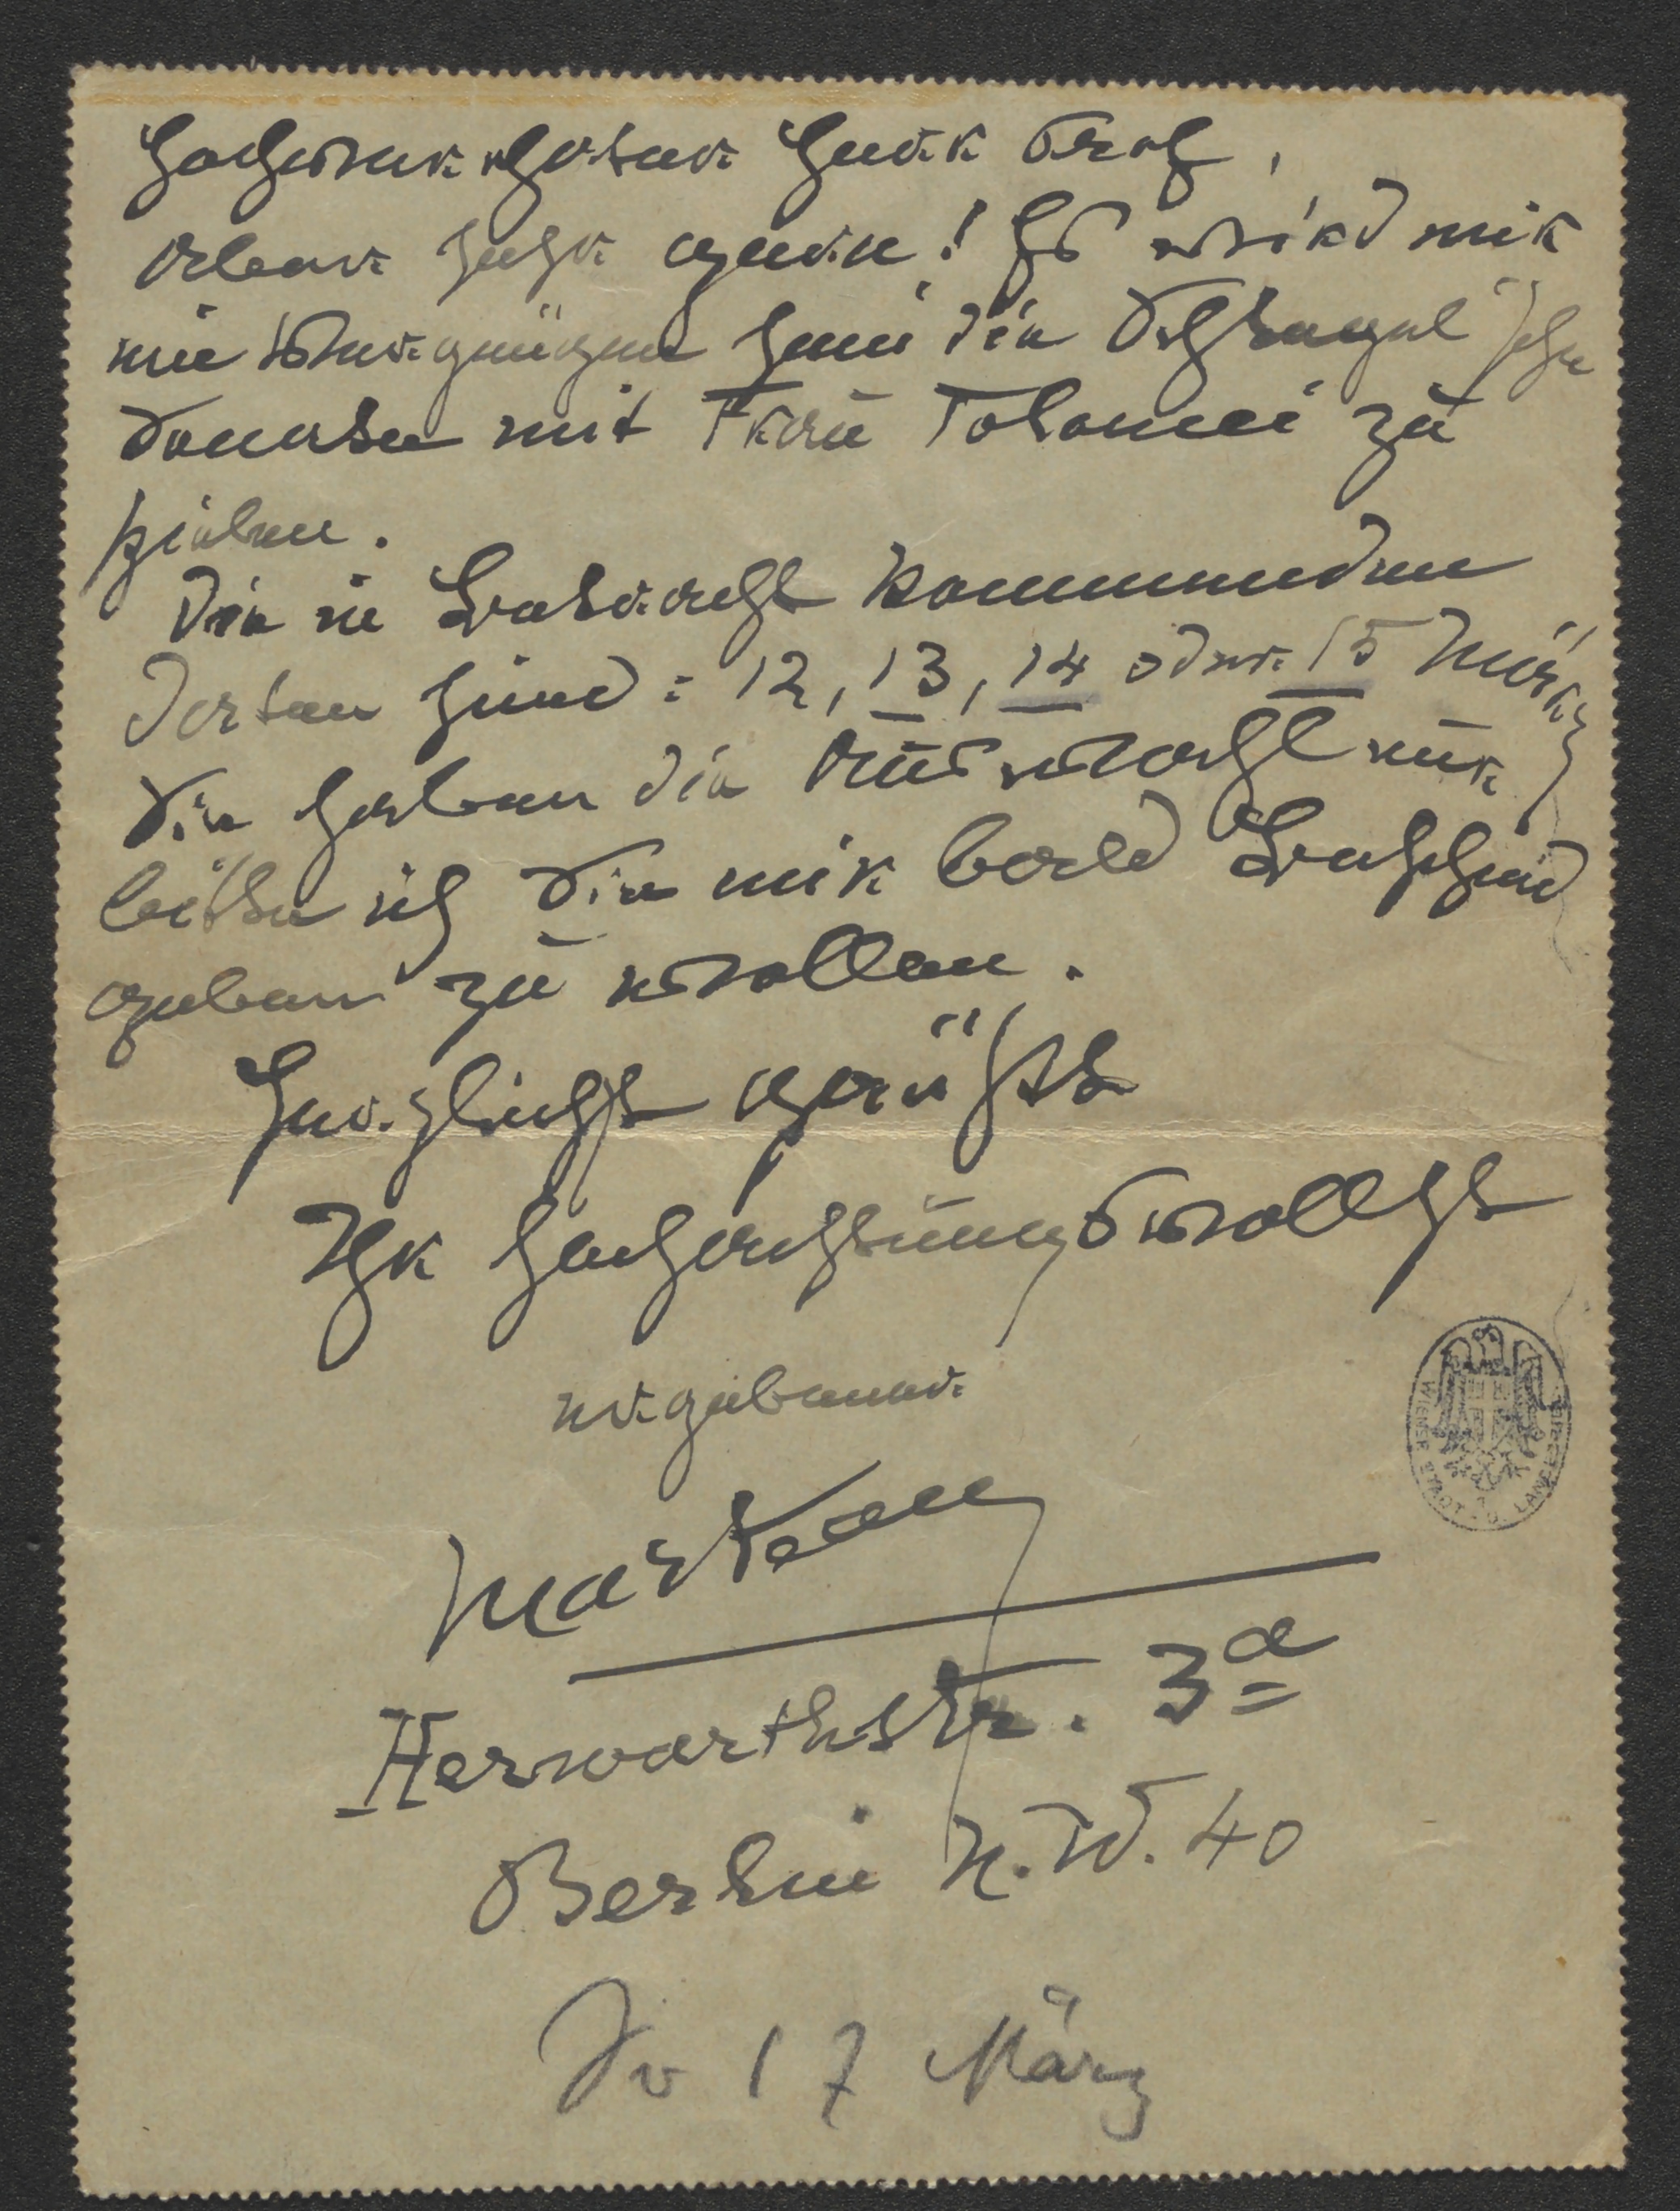 Hochverehrter Herr Prof,
aber sehr gern! Es wird mir
ein Vergnügen sein die Schlegel Ihre
Sonate mit Frau Tolomei zu
spielen.
Die in Betracht kommenden
Daten sind: 12, 13, 14 oder 15 März
Sie haben die Auswahl nur
bitte ich Sie mir bald Bescheid
geben zu wollen.
Herzlichst grüßt
Ihr hochachtungsvollst
ergebener
Marteau
Herwarthstr. 3a
Berlin N.W. 40
17 März
WIENER STADT- U. LANDES